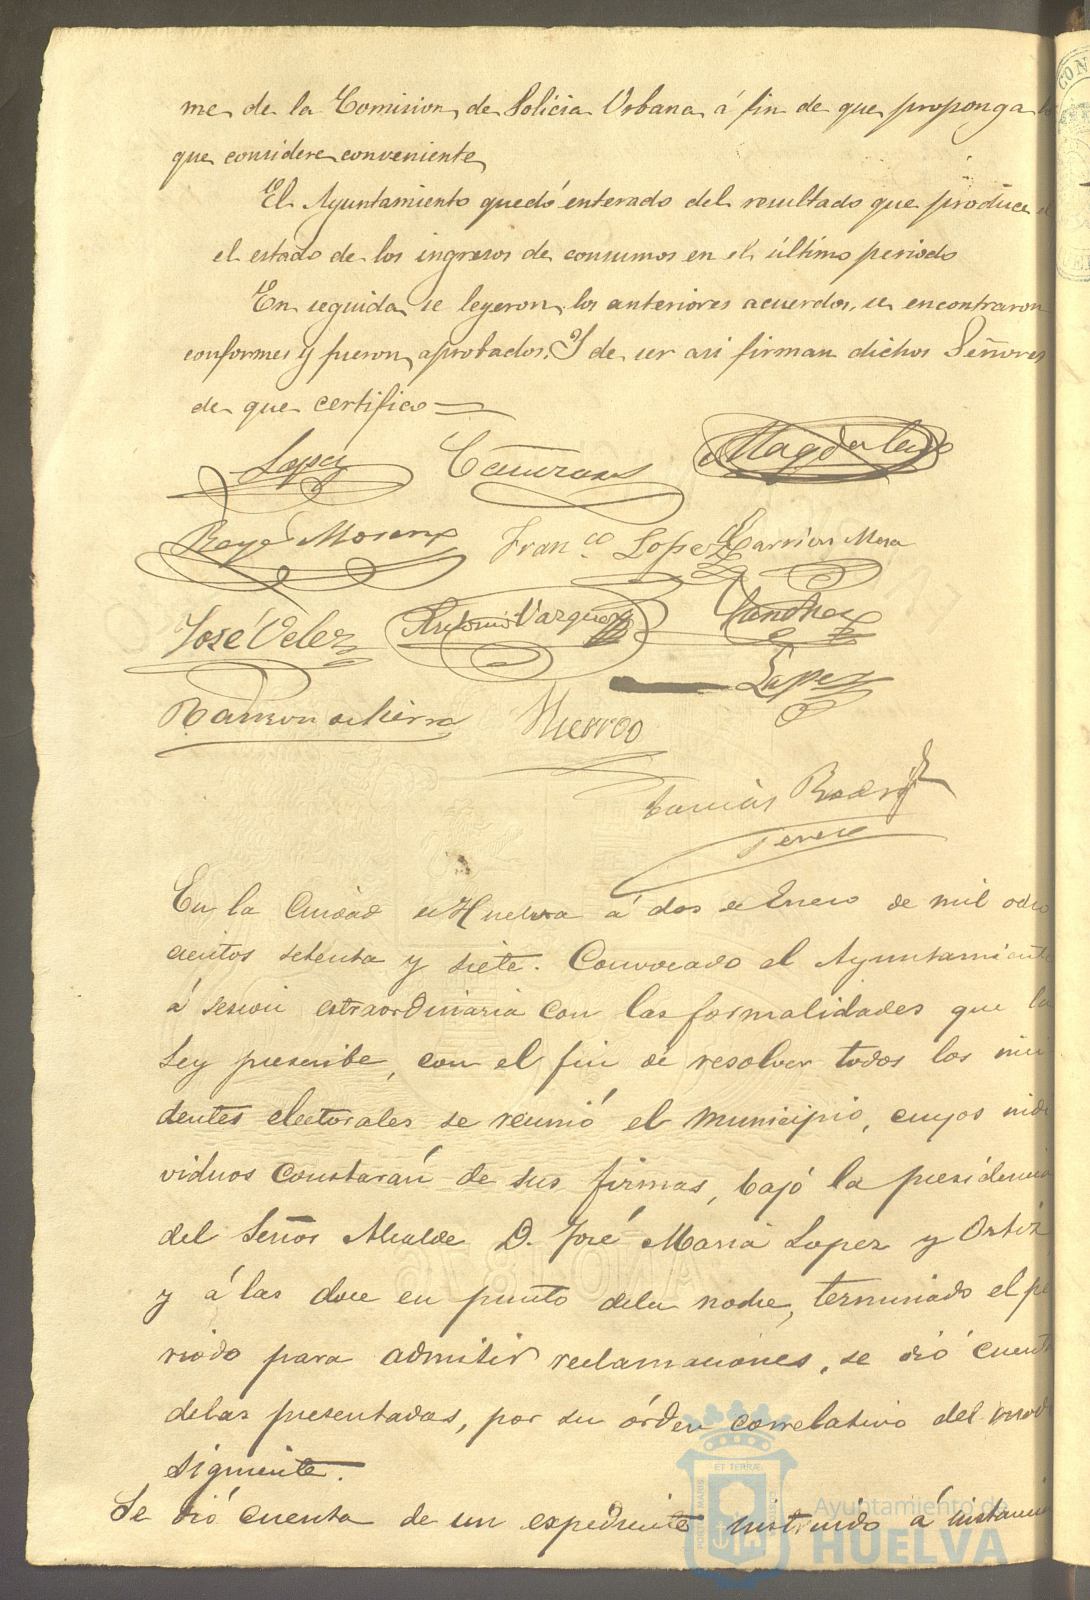 me de la Comision de Policia Urbana á fin de que proponga
que considere conveniente
El Ayuntamiento quedó enterado del resultado que produce
el estado de los ingresos de consumos en el último periodo
En seguida se leyeron los anteriores acuerdos, se encontraron
conformes y fueron aprobados. Y de ser asi firman dichos Señores
de que certifico
Lopez
Magdalena
Moreno Fran.co Lopez Barrios Mora
José Velez Antonio Vazquez Sanchez
Lopez
Ramon de Hierro
Tomás Rodrig
Perez
En la Ciudad de Huelva á dos de Enero de mil ocho
cientos setenta y siete. Convocado el Ayuntamiento
á sesion estraordinaria con las formalidades que la
Ley prescribe, con el fin de resolver todos los inci
dentes electorales se reunió el Municipio, cuyos indi
viduos constarán de sus firmas, bajó la presidencia
del Señor Alcalde D. José Maria Lopez y Ortiz
y á las doce en punto dela noche, terminado el pe
riodo para admitir reclamaciones, se dió cuenta
delas presentadas, por su órden correlativo del modo
siguiente.
Se dió cuenta de un expediente instruido á instancia
Ayuntamiento de
HUELVA